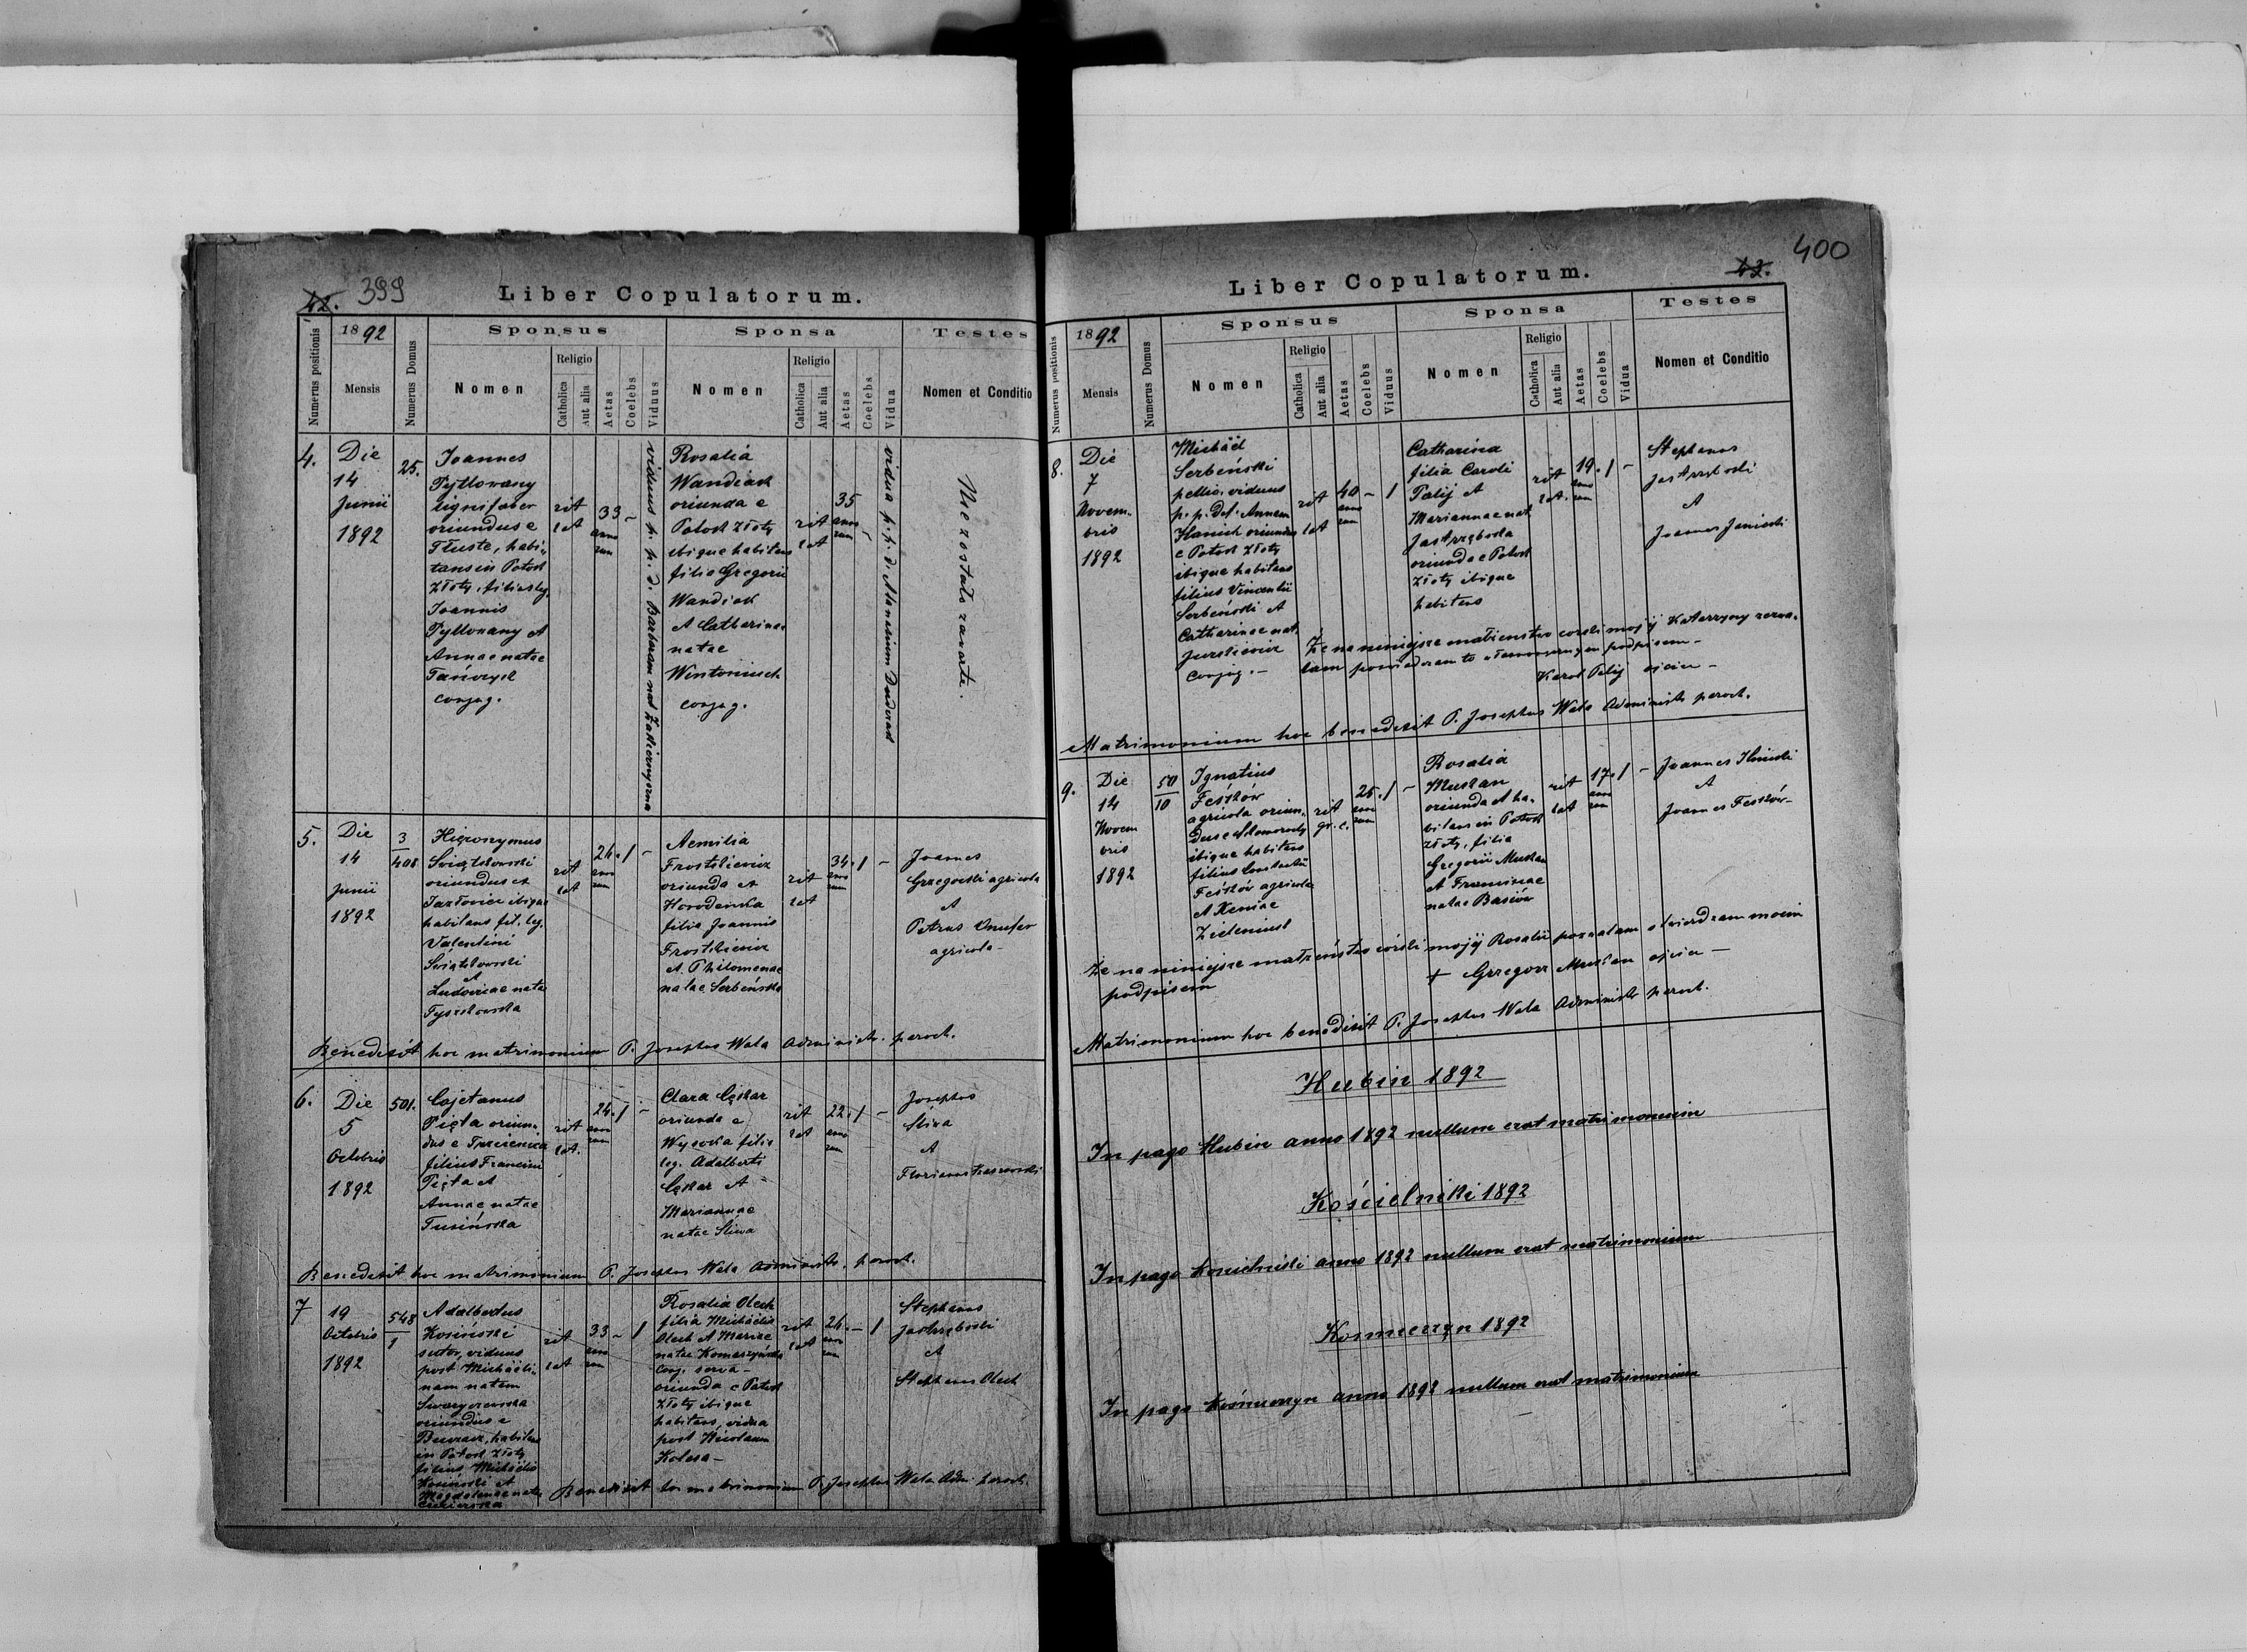 42. 399
Liber Copulatorum.
Numerus positionis
1892
Mensis
Numerus Domus
Sponsus
Nomen
Religio
Catholica
Aut alia
Aetas
Coelebs
Viduus
Sponsa
Nomen
Religio
Catholica
Aut alia
Aetas
Coelebs
Vidua
Testes
Nomen et Conditio
4.
Die
14
Junii
1892
25.
Joannes
Pyttowany
lignifaber
oriundus e
Tłuste, habi-
tans in Potok
Złoty, filius leg.
Joannis
Pyttowany et
Annae natae
conjug.
rit
lat
33
anno
rum
–
viduus p. p. d. Barbaram nat
Rosalia
Wandiak
oriunda e
Potok Złoty
ibique habitans
filia Gregorii
Wandiak
et Catharinae
natae
conjug.
rit
lat
35
anno
rum
–
vidua p. p. d.
Nie zostało zawarte.
5.
Die
14
Junii
1892
3
408
Hieronymus
Świątkowski
oriundus et
Jazłowiec ibique
habitans fil. leg.
Valentini
Świątkowski
et
Ludovicae natae
Tyszkowska
rit
lat
24. 1 –
anno
rum
Aemilia
Frostkiewicz
oriunda et
Horodenka
filia Joannis
Frostkiewicz
et Philomenae
natae Serbeńska
rit
lat
34. 1 –
anno
rum
Joannes
Grzegorski agricola
et
Petrus Onufer
agricola –
Benedixit hoc matrimonium P. Josephus Wala Administr. paroch.
6.
Die
5
Octobris
1892
501.
Cajetanus
Pięta oriun-
dus e Trzcienica
filius Francisci
Pięta et
Annae natae
Tusińska
rit
lat.
24. 1 –
anno
rum
Clara Cęskar
oriunda e
Wysocka filia
leg. Adalberti
Cęskar et
Mariannae
natae Śliwa
rit
lat
22. 1 –
anno
rum
Josephus
Śliwa
et
Florianus
Benedixit hoc matrimonium P. Josephus Wala Administr. paroch.
7
19
Octobris
1892
548
1
Adalbertus
Kosiński
sutor, viduus
post Michaëli-
nam natam
oriundus e
Buczacz, habitans
in Potok Złoty
filius Michaëlis
Kosiński et
Magdalenae natae
rit
lat
33 – 1
anno
rum
Rosalia Olech
filia Michaëlis
Olech et Mariae
natae Komaszyńska
conj.
oriunda e Potok
Złoty ibique
habitans, vidua
post Nicolaum
Kolesa –
rit
lat
26. – 1
anno
rum
Stephanus
Jastrzębski
et
Stephanus Olech
Benedixit hoc matrimonium P. Josephus Wala Adm. paroch.
43. 400
Liber Copulatorum.
Numerus positionis
1892
Mensis
Numerus Domus
Sponsus
Nomen
Religio
Catholica
Aut alia
Aetas
Coelebs
Viduus
Sponsa
Nomen
Religio
Catholica
Aut alia
Aetas
Coelebs
Vidua
Testes
Nomen et Conditio
8.
Die
7
Novem-
bris
1892
Michaël
Serbeński
pellio, viduus
p. p. def. Annam
Hanich oriundus
e Potok Złoty
ibique habitans
filius Vincentii
Serbeński et
Catharinae nat.
Jurkiewicz
conjug. –
rit
lat
40 – 1
anno
rum
Catharina
filia Caroli
Palij et
Mariannae nat.
Jastrzębska
oriunda e Potok
Złoty ibique
habitans
rit
lat.
19. 1 –
anno
rum
Stephanus
Jastrzębski
et
Joannes Janicki
Że na niniejsze małżeństwo córki mojej Katarzyny zezwa-
lam potwierdzam to własnoręcznym podpisem –
Karol Palij ojciec –
Matrimonium hoc benedixit P. Josephus Wala Administr. paroch.
9.
Die
14
Novem
bris
1892
50
10
Ignatius
Feśków
agricola oriun-
dus e
ibique habitans
filius
Feśków agricola
et Xeniae
Zieleniuk
rit
gr. c.
25. 1 –
anno
rum
Rosalia
Muskan
oriunda et ha-
bitans in Potok
Złoty, filia
Gregorii Muskan
et Franciscae
natae Basiów
rit
lat
17. 1 –
anno
rum
Joannes Ilnicki
et
Joannes Feśków –
Że na niniejsze małżeństwo córki mojej Rosalii pozwalam stwierdzam moim
podpisem
+ Grzegorz Muskan ojciec –
Matrimonium hoc benedixit P. Josephus Wala Administr. paroch.
Hubin 1892
In pago Hubin anno 1892 nullum erat matrimonium
Kościelniki 1892
In pago Kościelniki anno 1892 nullum erat matrimonium
Kośmierzyn 1892
In pago Kośmierzyn anno 1892 nullum erat matrimonium